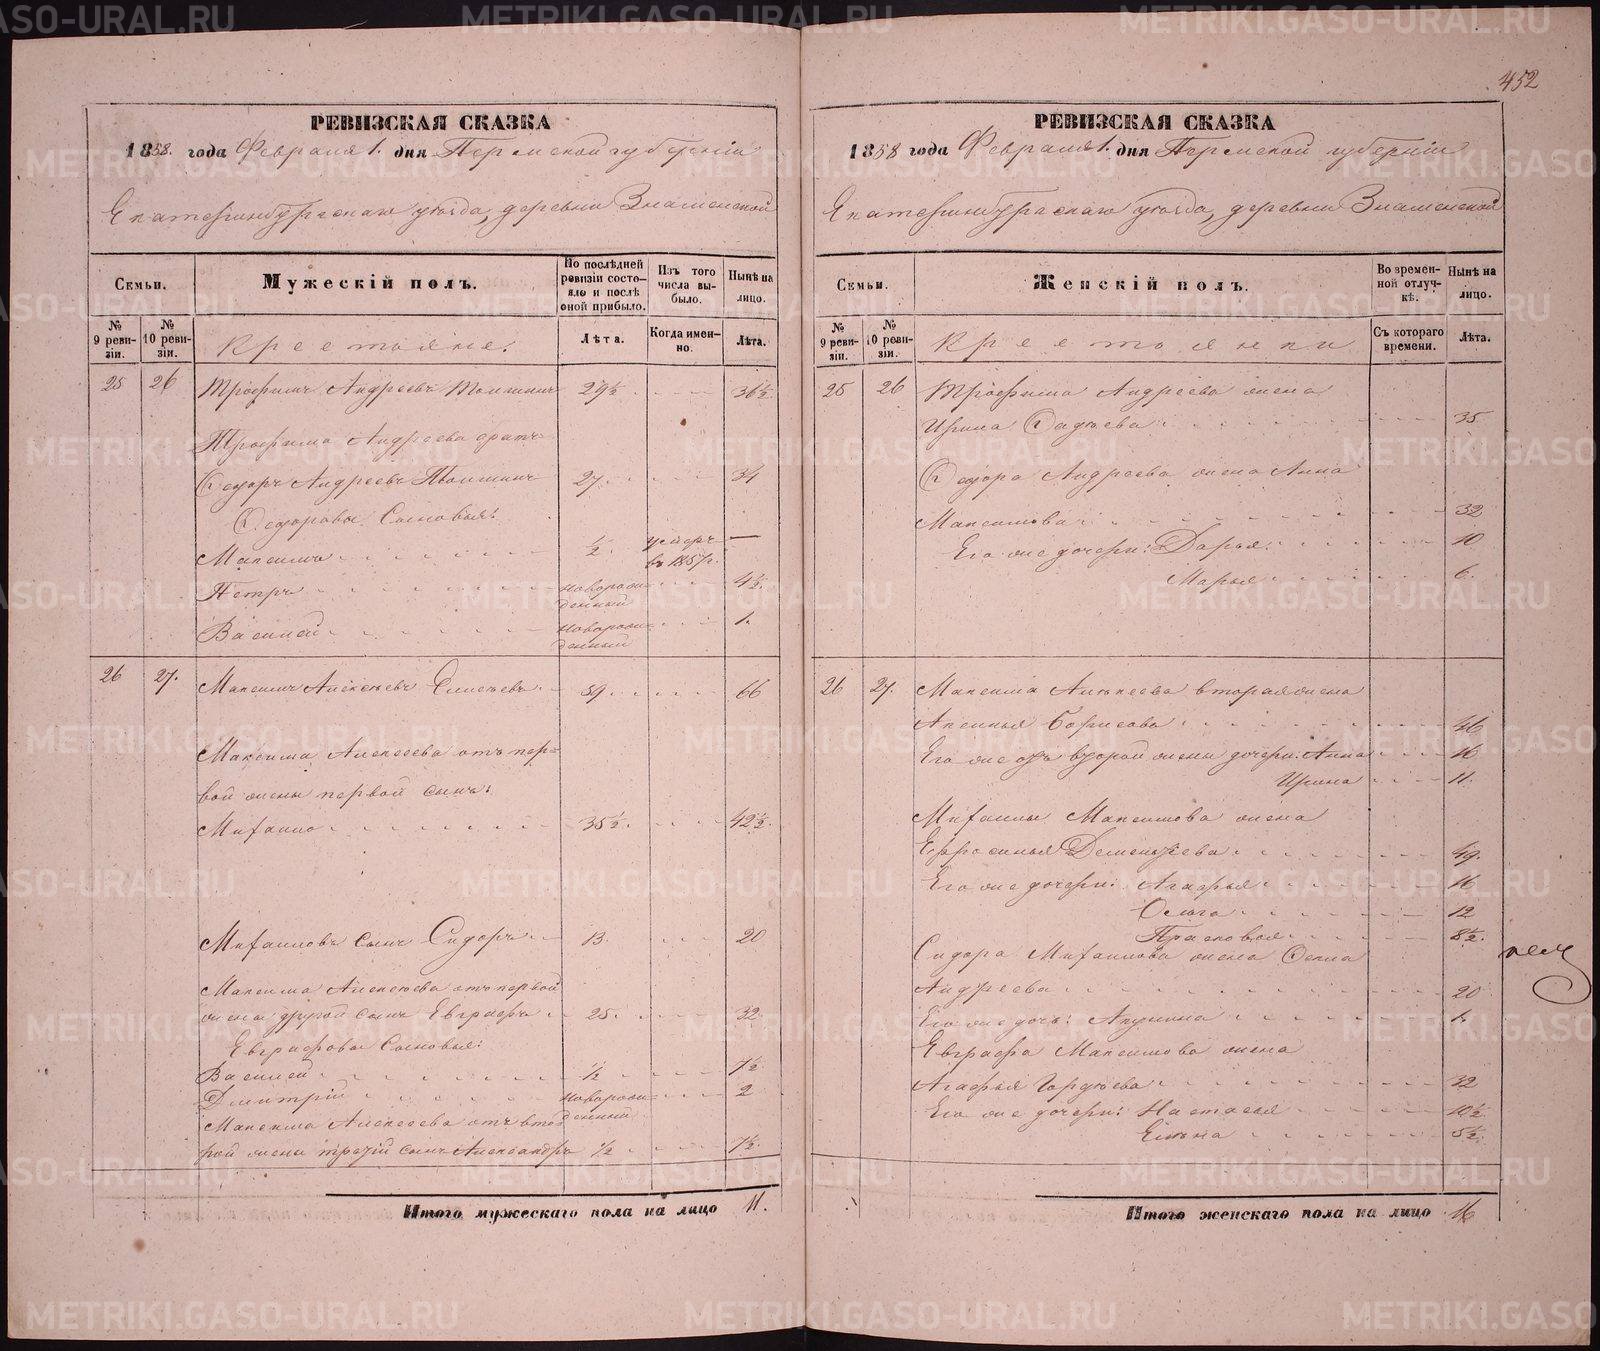 452
РЕВИЗСКАЯ СКАЗКА
1858. года Февраля 1. дня Пермской губернии
Екатеринбургскаго уѣзда, деревни Знаменской
Семьи.
Мужескій полъ.
По послѣдней ревизіи состояло и послѣ оной прибыло.
Изъ того числа выбыло.
Нынѣ на лицо.
№ 9 ревизіи.
№ 10 ревизіи.
Крестьяне.
Лѣта.
Когда именно.
Лѣта.
25 26 Трофимъ Андреевъ 29½ 36½
Трофима Андреева братъ
Ѳедоръ Андреевъ 27. 34
Ѳедоровы Сыновья:
Максимъ ½ умеръ в 1857 г. —
Петръ новорожденный 4½
Василей новорожденный 1.
26 27. Максимъ Алексѣевъ Елисѣевъ 59 66
Максима Алексеева отъ первой жены первой сынъ:
Михаило 35½ 42½
Михаиловъ сынъ Сидоръ 13. 20
Максима Алексѣева отъ первой
жены другой сынъ Евграфъ 25. 32
Евграфовы Сыновья:
Василей ½ 7½
Дмитрій новорожденный 2
Максима Алексѣева отъ второй жены третій сынъ Александръ ½ 7½
Итого мужескаго пола на лицо 11.
РЕВИЗСКАЯ СКАЗКА
1858 года Февраля 1. дня Пермской губерніи
Екатеринбургскаго уѣзда, деревни Знаменской
Семьи.
Женскій полъ.
Во временной отлучкѣ.
Нынѣ на лицо.
№ 9 ревизіи.
№ 10 ревизіи.
Крестьянки
Съ котораго времени.
Лѣта.
25 26 Трофима Андреева жена
Ирина Фадѣева 35
Ѳедора Андреева жена Анна
Максимова 32
Его же дочери: Дарья 10
Марья 6.
26 27. Максима Алексеева вторая жена
Аксинья Борисова 46
Его же отъ второй жены дочери: Анна 16
Ирина 11.
Михаилы Максимова жена
Ефросинья Дементьева 49.
Его же дочери: Агафья 16
Ольга 12
Прасковья 8½.
Сидора Михаилова жена Ѳекла
Андреева 20
Его же дочь: Акулина 1.
Евграфа Максимова жена
Агафья Гордѣева 32
Его же дочери: Настасья 10½
Елена 5½
Итого женскаго пола на лицо 16